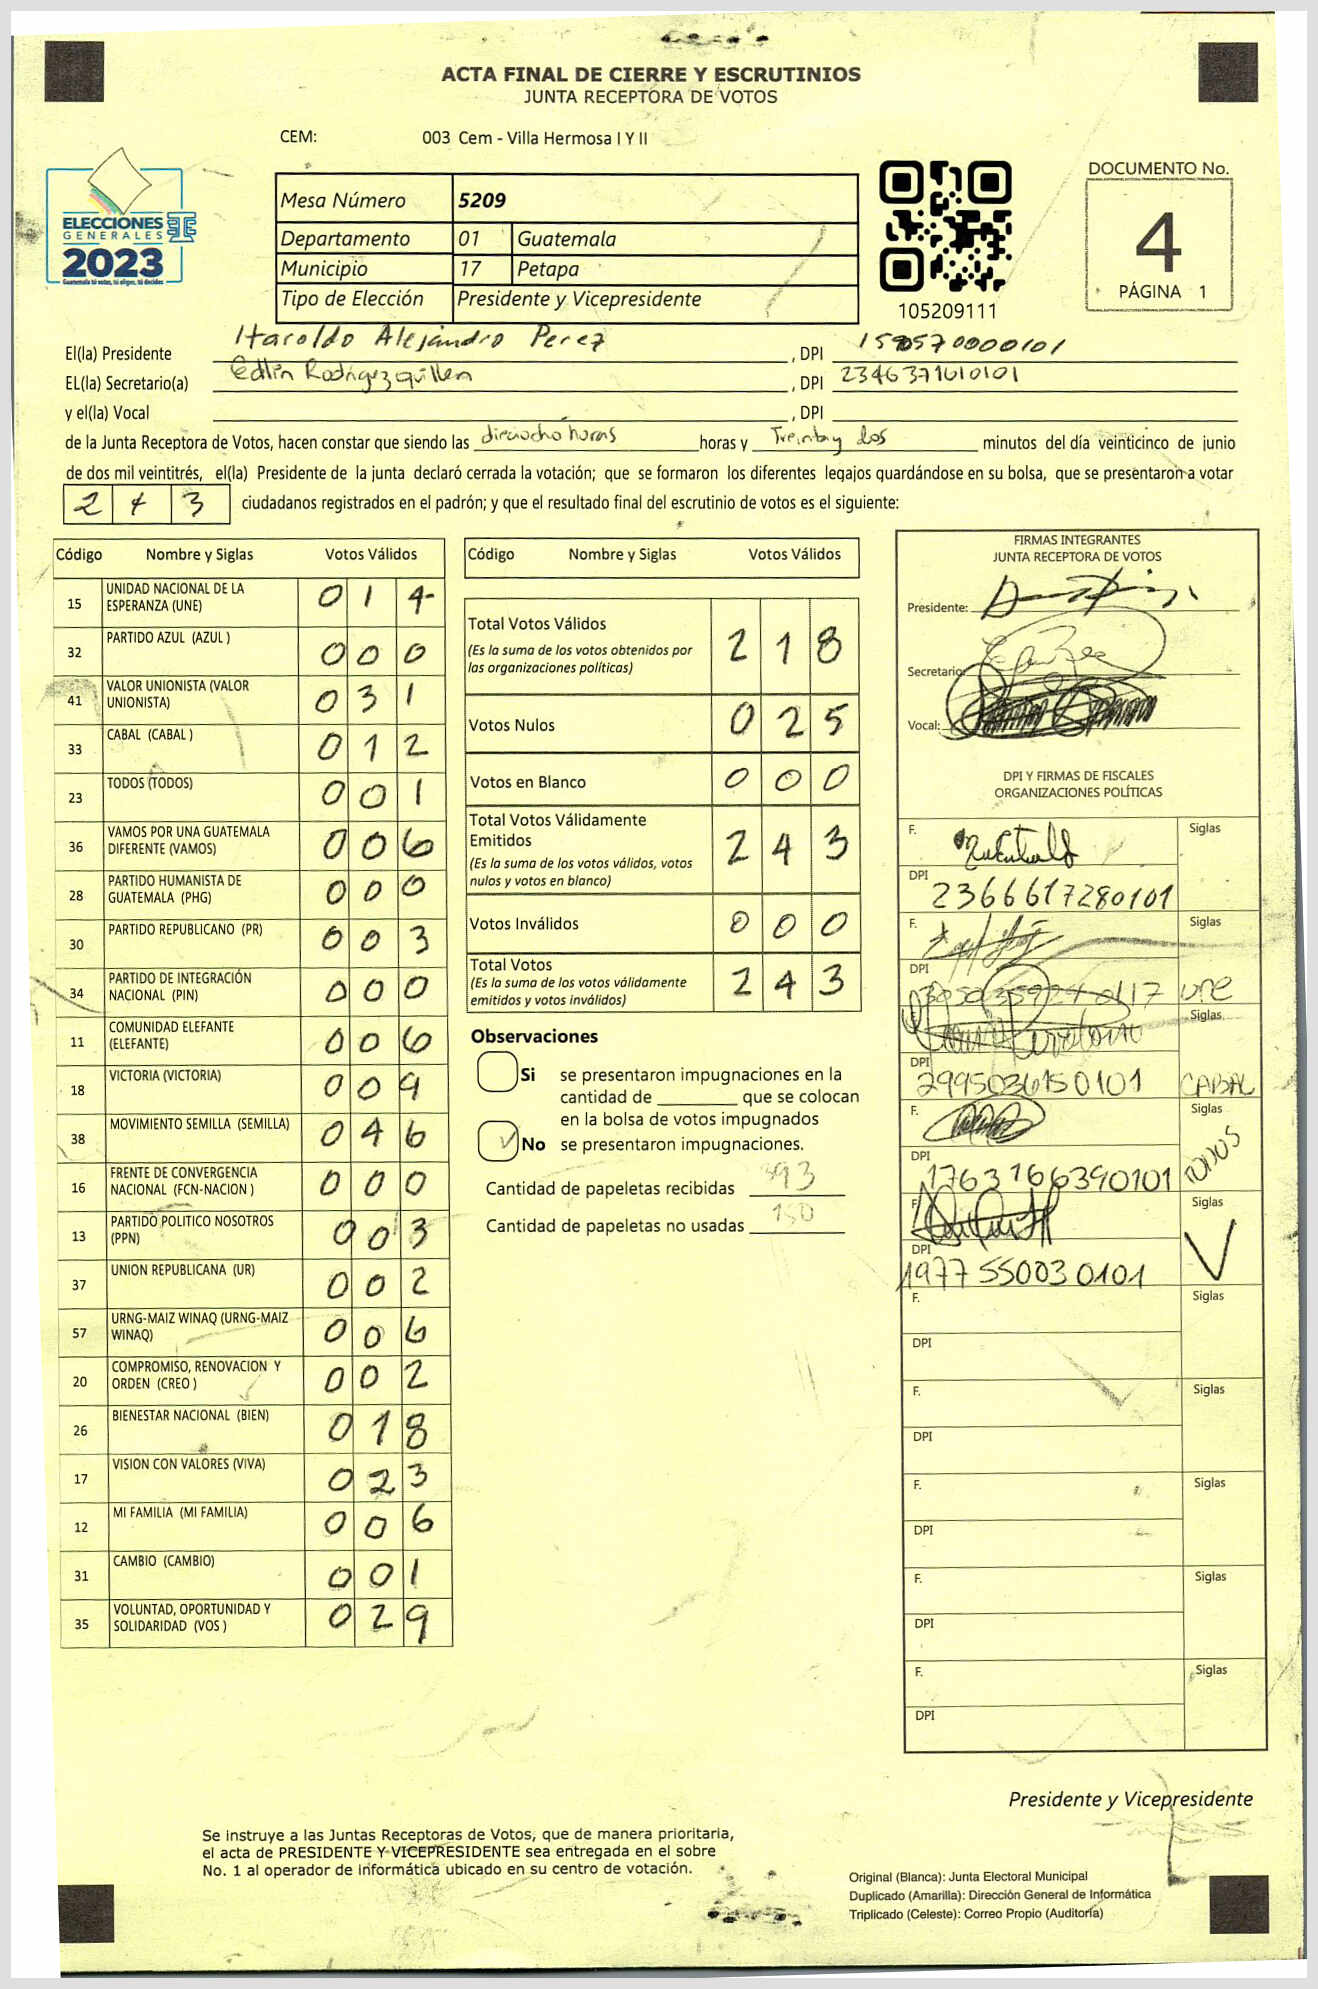 ACTA FINAL DE CIERRE Y ESCRUTINIOS
JUNTA RECEPTORA DE VOTOS
CEM: 003 Cem - Villa Hermosa I Y II
ELECCIONES
GENERALES
2023
Guatemala tú votas, tú eliges, tú decides
Mesa Número 5209
Departamento 01 Guatemala
Municipio 17 Petapa
Tipo de Elección Presidente y Vicepresidente
105209111
DOCUMENTO No.
4
PÁGINA 1
El(la) Presidente Haroldo Alejandro Perez , DPI
EL(la) Secretario(a) Edlin Rodriguez , DPI 2346371610101
y el(la) Vocal , DPI
de la Junta Receptora de Votos, hacen constar que siendo las dieciocho horas horas y Treinta y dos minutos del día veinticinco de junio
de dos mil veintitrés, el(la) Presidente de la junta declaró cerrada la votación; que se formaron los diferentes legajos quardándose en su bolsa, que se presentaron a votar
2 4 3 ciudadanos registrados en el padrón; y que el resultado final del escrutinio de votos es el siguiente:
Código Nombre y Siglas Votos Válidos
15 UNIDAD NACIONAL DE LA ESPERANZA (UNE) 0 1 4
32 PARTIDO AZUL (AZUL ) 0 0 0
41 VALOR UNIONISTA (VALOR UNIONISTA) 0 3 1
33 CABAL (CABAL ) 0 1 2
23 TODOS (TODOS) 0 0 1
36 VAMOS POR UNA GUATEMALA DIFERENTE (VAMOS) 0 0 6
28 PARTIDO HUMANISTA DE GUATEMALA (PHG) 0 0 0
30 PARTIDO REPUBLICANO (PR) 0 0 3
34 PARTIDO DE INTEGRACIÓN NACIONAL (PIN) 0 0 0
11 COMUNIDAD ELEFANTE (ELEFANTE) 0 0 6
18 VICTORIA (VICTORIA) 0 0 9
38 MOVIMIENTO SEMILLA (SEMILLA) 0 4 6
16 FRENTE DE CONVERGENCIA NACIONAL (FCN-NACION ) 0 0 0
13 PARTIDO POLITICO NOSOTROS (PPN) 0 0 3
37 UNION REPUBLICANA (UR) 0 0 2
57 URNG-MAIZ WINAQ (URNG-MAIZ WINAQ) 0 0 6
20 COMPROMISO, RENOVACION Y ORDEN (CREO ) 0 0 2
26 BIENESTAR NACIONAL (BIEN) 0 1 8
17 VISION CON VALORES (VIVA) 0 2 3
12 MI FAMILIA (MI FAMILIA) 0 0 6
31 CAMBIO (CAMBIO) 0 0 1
35 VOLUNTAD, OPORTUNIDAD Y SOLIDARIDAD (VOS ) 0 2 9
Código Nombre y Siglas Votos Válidos
Total Votos Válidos 2 1 8
(Es la suma de los votos obtenidos por
las organizaciones políticas)
Votos Nulos 0 2 5
Votos en Blanco 0 0 0
Total Votos Válidamente
Emitidos 2 4 3
(Es la suma de los votos válidos, votos
nulos y votos en blanco)
Votos Inválidos 0 0 0
Total Votos 2 4 3
(Es la suma de los votos válidamente
emitidos y votos inválidos)
Observaciones
Si se presentaron impugnaciones en la
cantidad de ________ que se colocan
en la bolsa de votos impugnados
No se presentaron impugnaciones.
Cantidad de papeletas recibidas 393
Cantidad de papeletas no usadas 150
FIRMAS INTEGRANTES
JUNTA RECEPTORA DE VOTOS
Presidente:
Secretario:
Vocal:
DPI Y FIRMAS DE FISCALES
ORGANIZACIONES POLÍTICAS
F. Siglas
DPI 2366617280101
F. Siglas
DPI UNE
Siglas
DPI 2995036150101 CABAL
F. Siglas
DPI 1763166390101 TODOS
F. Siglas
DPI 1977550030101 V
F. Siglas
DPI
F. Siglas
DPI
F. Siglas
DPI
F. Siglas
DPI
F. Siglas
DPI
Presidente y Vicepresidente
Se instruye a las Juntas Receptoras de Votos, que de manera prioritaria,
el acta de PRESIDENTE Y VICEPRESIDENTE sea entregada en el sobre
No. 1 al operador de informática ubicado en su centro de votación.
Original (Blanca): Junta Electoral Municipal
Duplicado (Amarilla): Dirección General de Informática
Triplicado (Celeste): Correo Propio (Auditoría)